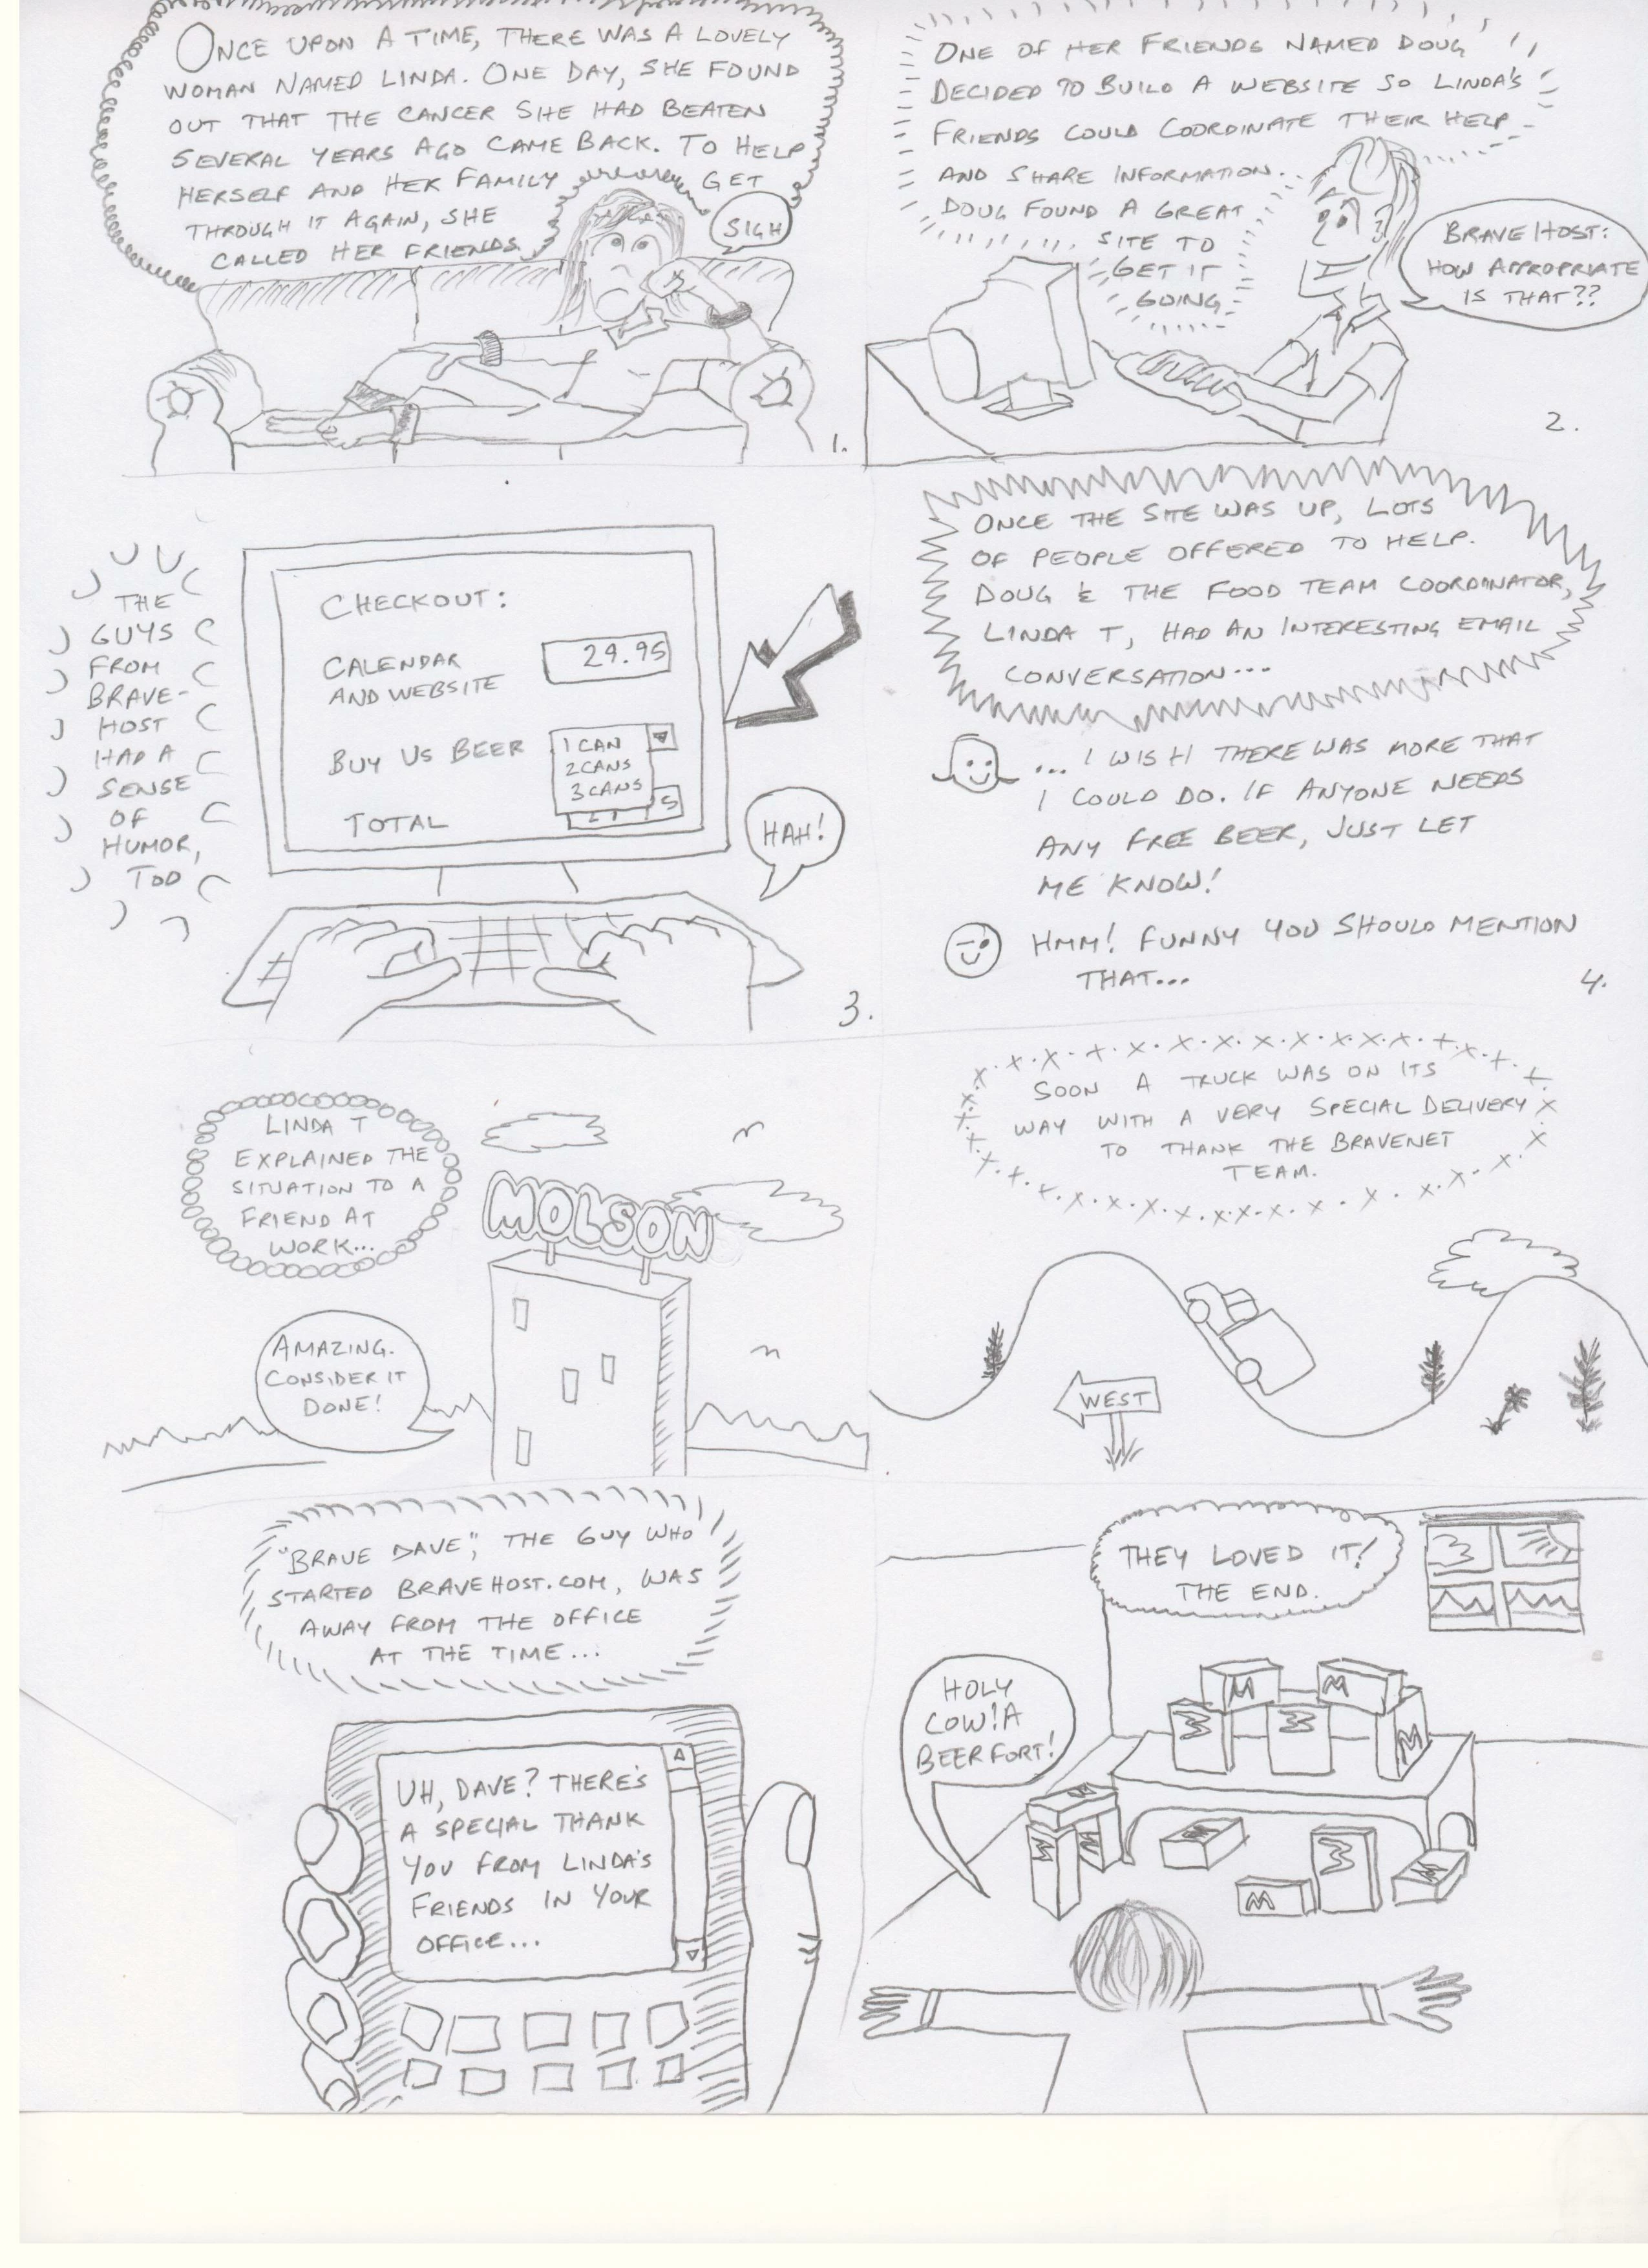 ONCE UPON A TIME, THERE WAS A LOVELY
WOMAN NAMED LINDA. ONE DAY, SHE FOUND
OUT THAT THE CANCER SHE HAD BEATEN
SEVERAL YEARS AGO CAME BACK. TO HELP
HERSELF AND HER FAMILY GET
THROUGH IT AGAIN, SHE
CALLED HER FRIENDS.
SIGH
1.
ONE OF HER FRIENDS NAMED DOUG
DECIDED TO BUILD A WEBSITE SO LINDA'S
FRIENDS COULD COORDINATE THEIR HELP
AND SHARE INFORMATION.
DOUG FOUND A GREAT
SITE TO
GET IT
GOING
BRAVEHOST:
HOW APPROPRIATE
IS THAT??
2.
THE
GUYS
FROM
BRAVE-
HOST
HAD A
SENSE
OF
HUMOR,
TOO
CHECKOUT:
CALENDAR
AND WEBSITE
29.95
BUY US BEER
1 CAN
2 CANS
3 CANS
TOTAL
5
HAH!
3.
ONCE THE SITE WAS UP, LOTS
OF PEOPLE OFFERED TO HELP.
DOUG & THE FOOD TEAM COORDINATOR,
LINDA T, HAD AN INTERESTING EMAIL
CONVERSATION...
... I WISH THERE WAS MORE THAT
I COULD DO. IF ANYONE NEEDS
ANY FREE BEER, JUST LET
ME KNOW!
HMM! FUNNY YOU SHOULD MENTION
THAT...
4.
LINDA T
EXPLAINED THE
SITUATION TO A
FRIEND AT
WORK...
MOLSON
AMAZING.
CONSIDER IT
DONE!
SOON A TRUCK WAS ON ITS
WAY WITH A VERY SPECIAL DELIVERY
TO THANK THE BRAVENET
TEAM.
WEST
"BRAVE DAVE", THE GUY WHO
STARTED BRAVEHOST.COM, WAS
AWAY FROM THE OFFICE
AT THE TIME...
UH, DAVE? THERE'S
A SPECIAL THANK
YOU FROM LINDA'S
FRIENDS IN YOUR
OFFICE...
THEY LOVED IT!
THE END.
HOLY
COW! A
BEER FORT!
M
M
M
M
M
M
M
M
M
M
M
M